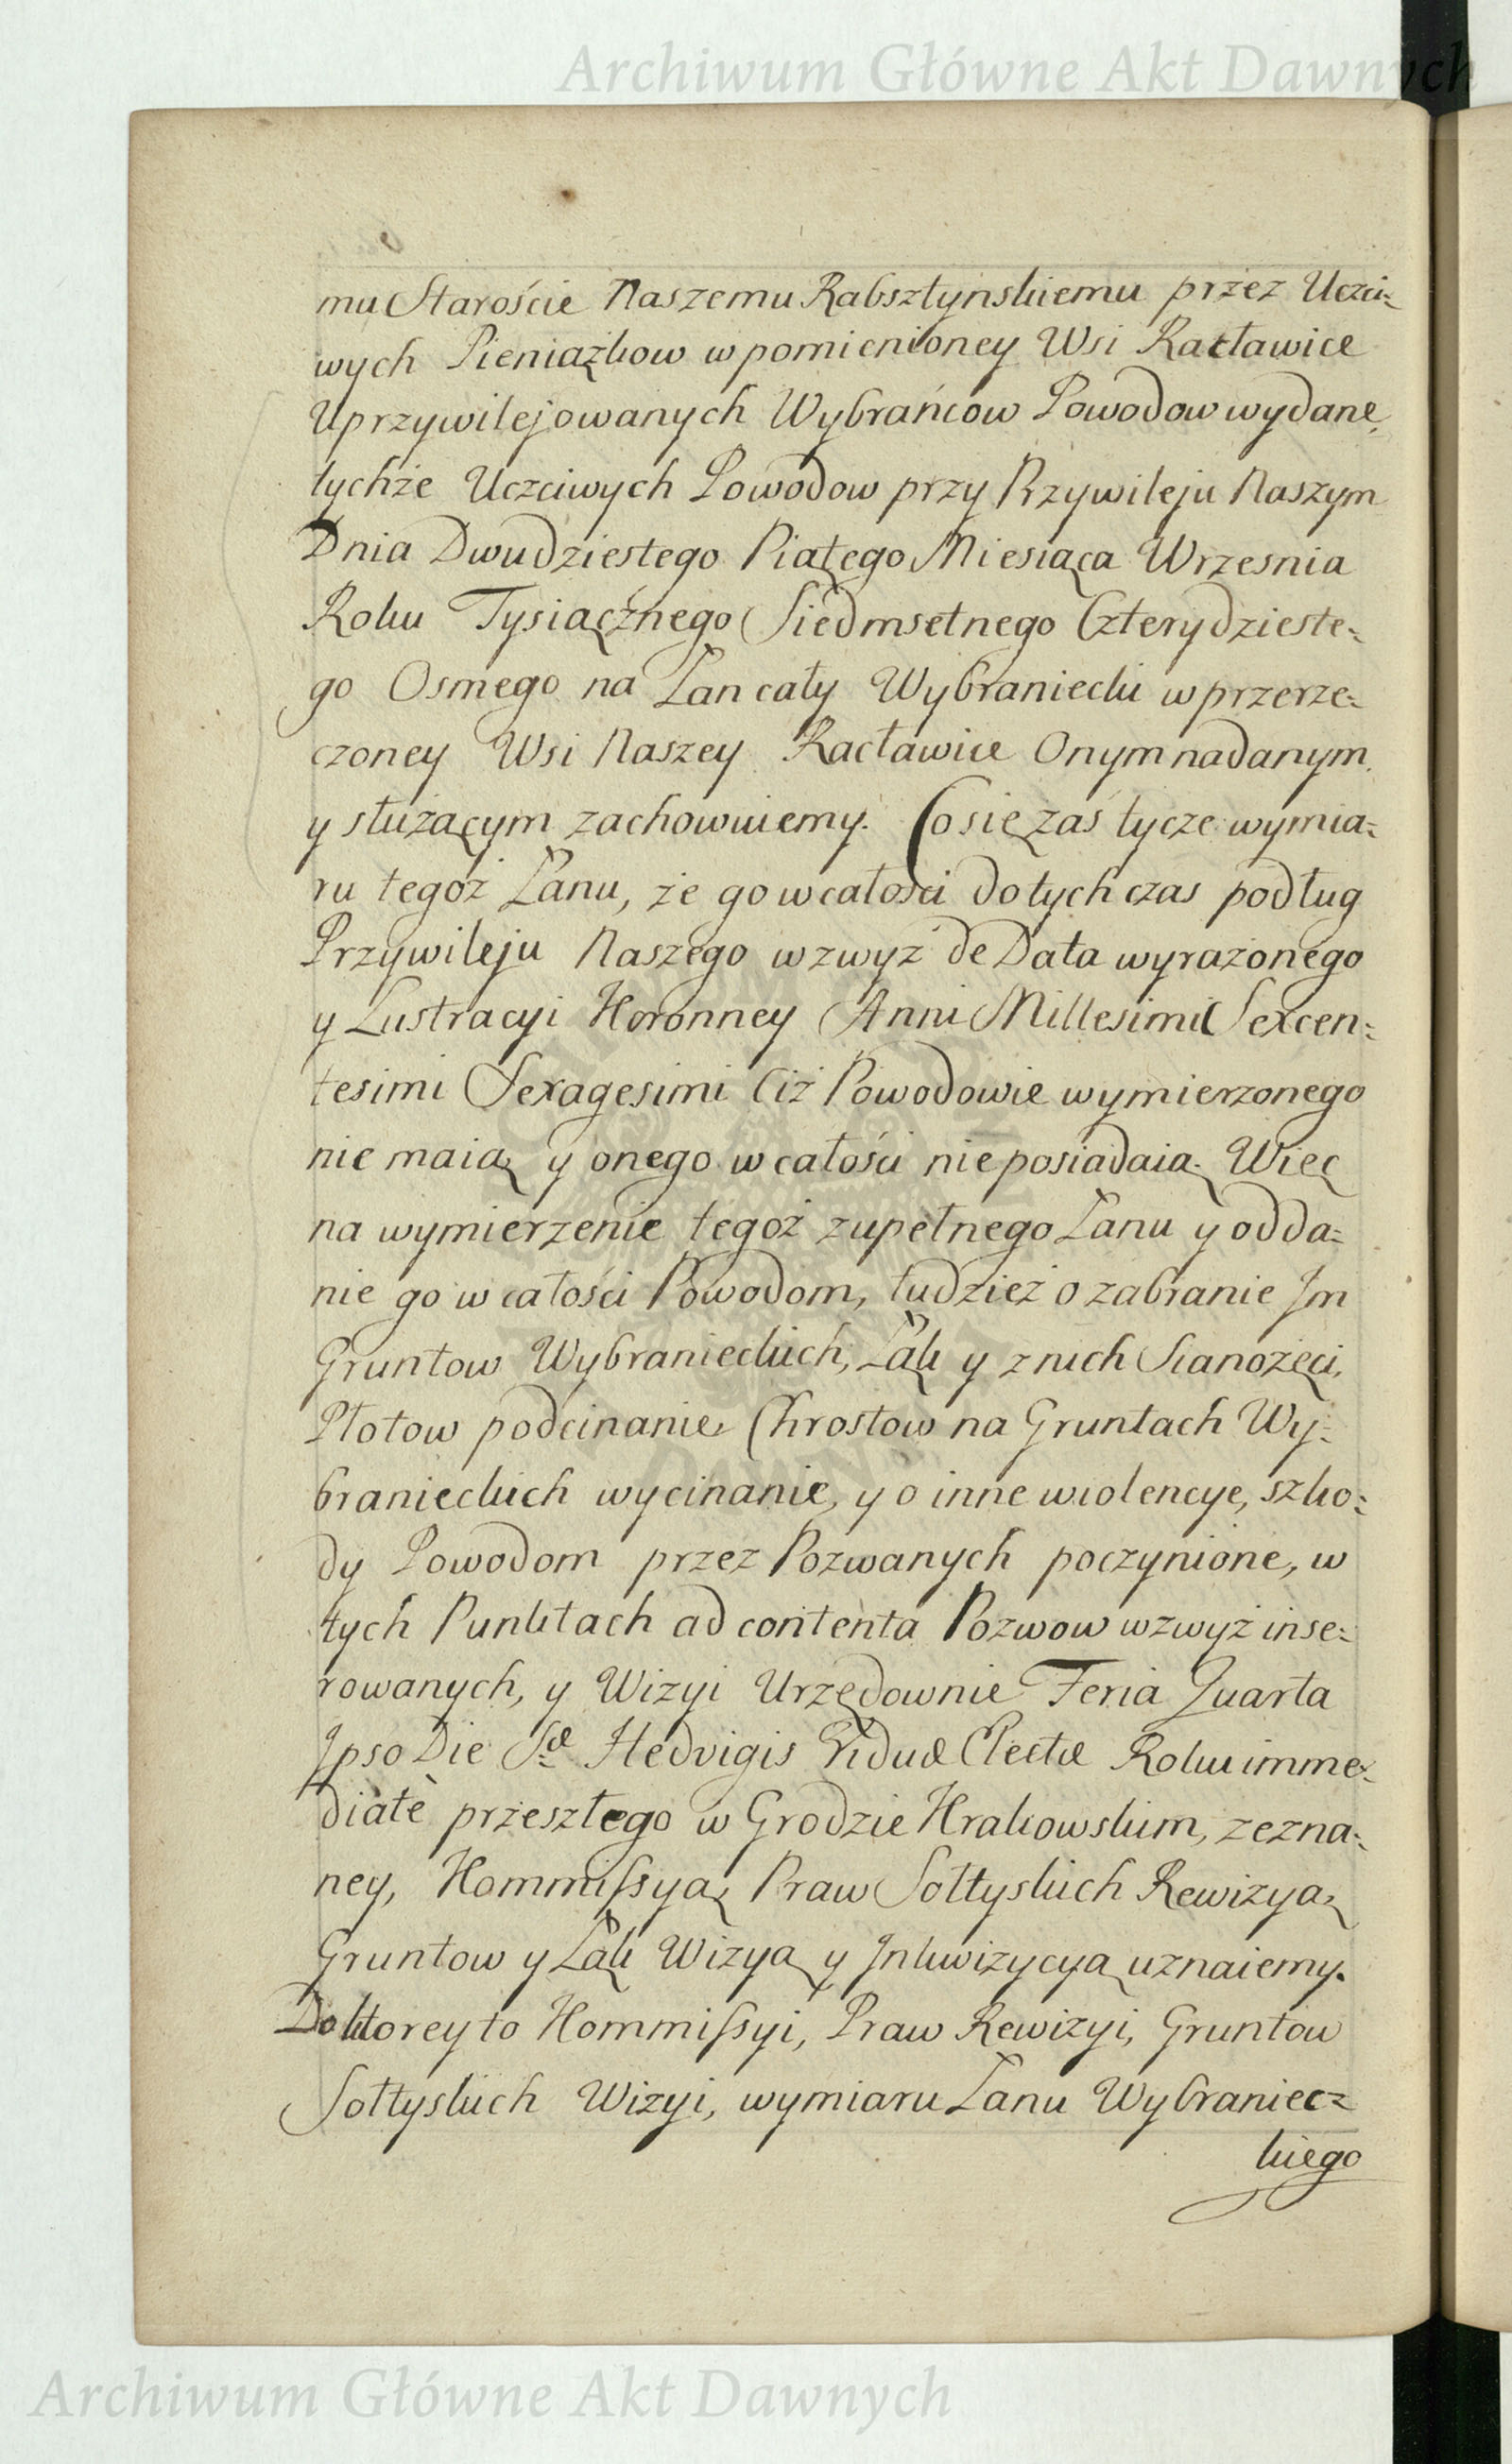 Archiwum Główne Akt Dawnych
mu Staroście Naszemu Rabsztynskiemu przez Uczci=
wych Pieniążkow w pomienioney Wsi Racławice
Uprzywilejowanych Wybrańcow Powodow wydane,
tychże Uczciwych Powodow przy Przywileju Naszym
Dnia Dwudziestego Piątego Miesiąca Wrzesnia
Roku Tysiącżnego Siedmsetnego Czterydzieste=
go Osmego na Łan cały Wybraniecki w przerze=
czoney Wsi Naszey Racławice Onym nadanym
y służącym zachowuiemy. Co się zaś tycze wymia=
ru tegoż Łanu, że go w całości dotychczas podług
Przywileju Naszego wzwyż de Data wyrażonego
y Lustracyi Koronney Anni Millesimi Sexcen=
tesimi Sexagesimi Ciż Powodowie wymierzonego
nie maią y onego w całości nie posiadaią. Więc
na wymierzenie tegoż zupełnego Łanu y odda=
nie go w całości Powodom, tudzież o zabranie Jm
Gruntow Wybranieckich, Łąk y z nich Sianożęci,
Płotow podcinanie, Chrostow na Gruntach Wy=
branieckich wycinanie, y o inne wiolencye, szko=
dy Powodom przez Pozwanych poczynione, w
tych Punktach ad contenta Pozwow wzwyż inse=
rowanych, y Wizyi Urzędownie Feria Quarta
Jpso Die Sæ Hedvigis Viduæ Electæ Roku imme=
diatè przeszłego w Grodzie Krakowskim, zezna=
ney, Kommissyą, Praw Sołtyskich Rewizyą,
Gruntow y Łąk Wizyą y Jnkwizycyą uznaiemy.
Do ktorey to Kommissyi, Praw Rewizyi, Gruntow
Sołtyskich Wizyi, wymiaru Łanu Wybraniec=
kiego
Archiwum Główne Akt Dawnych